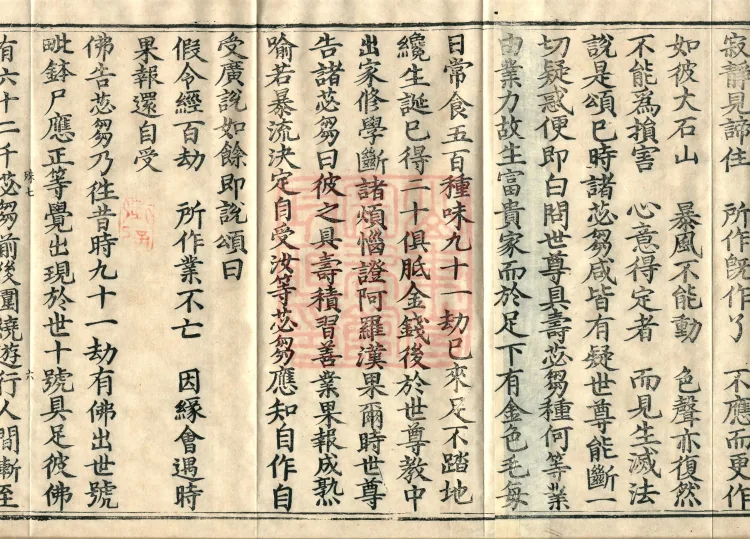 寂靜見諦住　所作旣作了　不應而更作
如彼大石山　暴風不能動　色聲亦復然
不能爲損害　心意得定者　而見生滅法
說是頌已時諸苾芻咸皆有疑世尊能斷一
切疑惑便即白問世尊具壽苾芻種何等業
由業力故生富貴家而於足下有金色毛每
日常食五百種味九十一劫已來足不踏地
纔生誕已得二十俱胝金錢後於世尊教中
出家修學斷諸煩惱證阿羅漢果爾時世尊
告諸苾芻曰彼之具壽積習善業果報成熟
喻若暴流決定自受汝等苾芻應知自作自
受廣說如餘即說頌曰
假令經百劫　所作業不亡　因緣會遇時
果報還自受
佛告苾芻乃徃昔時九十一劫有佛出世號
毗鉢尸應正等覺出現於世十號具足彼佛
殊七
六
有六十二千苾芻前後圍繞遊行人間漸至